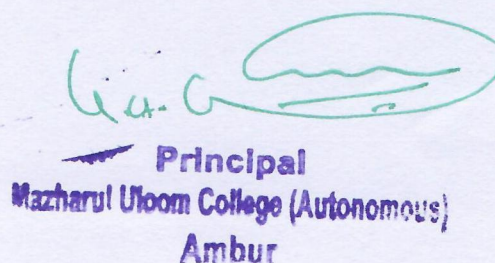 Principal
Mazharul Uloom College (Autonomous)
Ambur